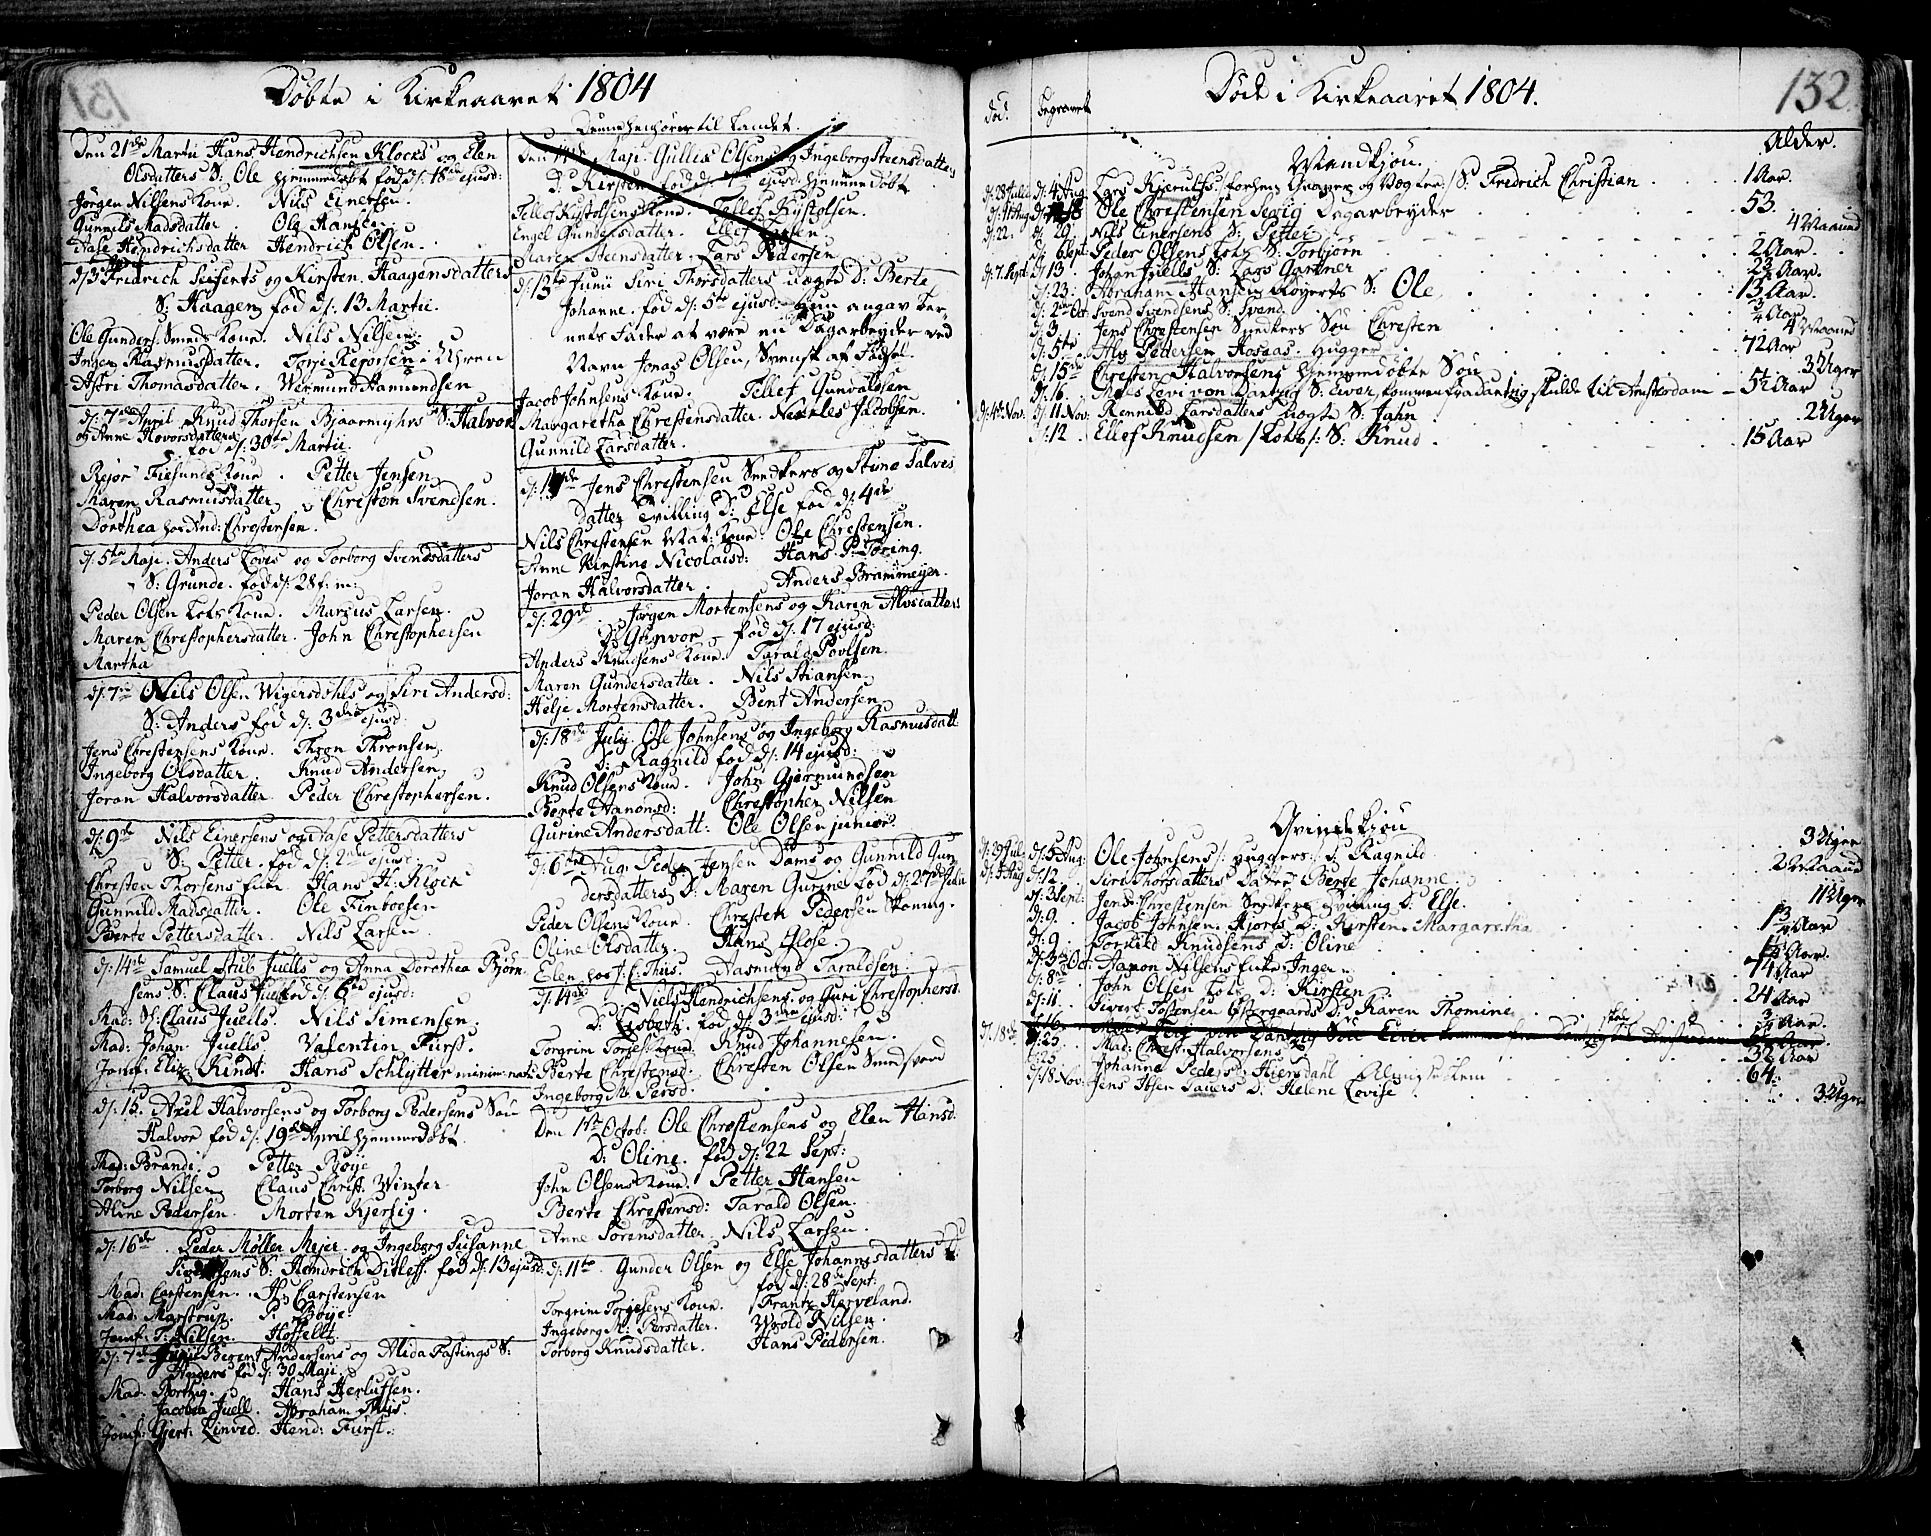 Døbte i Kirkeaaret 1804
Den 21de Martii Hans Hendrichsen Klocks og Elen
Olsdatters S: Ole hjemmedøbt født d: 18de ejusd:
Jörgen Nilsens Kone. Nils Einersen.
Gunnild Madsdatter Ole Hansen.
Aase Hendrichsdatter Hendrich Olsen.
Fridrich Seiferts og Kirsten Haagensdatters
S: Haagen fød d: 13 Martii.
Ole Gunders: Smeds Kone. Nils Nilsen
Inger Rasmusdatter. Torje Rejorsen Uhren
Astri Thomasdatter. Wermund Aamundsen
d: 7de April Knud Thorsen Bjaarmyhrs S: Halvor
og Anne Hovorsdatters
fød d: 30te Martii.
Rejor Fiesunds Kone. Petter Jensen
Maren Rasmusdatter Christen Svendsen.
Dorthea hos And: Christensen.
d: 5te Maji. Anders Loves og Torborg Svendsdatters
S: Grunde. fød d: 28 f: m:
Peder Olsen Lods Kone. Marcus Larsen.
Maren Christophersdatter. John Christophersen
Martha
d: 7de Nils Olsen Wigersdohls og Siri Andersd:
S: Anders fød d: 3die ejusd:
Jens Christensens Kone. Thron Thronsen.
Ingeborg Olsdatter. Knud Andersen
Joran Halvorsdatter. Peder Christophersen.
d: 9de Nils Einersens og Aase Pettersdatters
S: Petter. fød d: 2den ejusd:
Christen Thorsens Enke Hans H: Klock
Gunnild Madsdatter. Ole Finboesen
Berte Pettersdatter. Nils Larsen
d: 14de Samuel Stub Juells og Anna Dorothea Bjørn-
sens S: Claus Juell fød d: 6te ejusd:
Mad: Sl: Claus Juells. Nils Simensen.
Mad: Johan Juells. Valentin Fürst.
Jomf: Eliz: Kindt. Hans Schlytter
d: 15. Axel Halvorsens og Torborg Pedersens Søn
Halvor fød d: 19de April hjemmedøbt.
Mad: Brandt. Petter Bøije
Torborg Nilsen Claus Christ: Winter
Aline Pedersen. Morten Kjersig.
d: 16de Peder Møller Mejer og Ingeborg Susanne
S: Hendrich Ditleff. fød d: 13 ejusd:
Mad: Carstensen. Hs Carstensen
Mad: Marstrup. P. Bøije.
Jomf: I: Nilsen. Hoffellt.
d: 7de Junii Berent Andersens og Alida Fastings S:
Anders fød d: 30 Maji
Mad: Borthig. Hans Herlufsen.
Jacobea Juell. Abraham Thiis.
Jomf: Gjert: Linved. Hend: Fürst.
Denne henhører til Landet.
Den 14de Maji Gullis Olsens og Ingeborg Steensdatters
D: Kirsten fød d: 7de ejusd: hjemmedøbt
Tellef Kystolsens Kone. Tellef Kystolsen.
Engel Gundersdatter. Ellef Larsen
Maren Steensdatter. Lars Pedersen
d: 13de Junii Siri Thorsdatters uægte D: Berte
Johanne. fød d: 5te ejusd: hun angav Bar-
nets Fader at være en Dagarbeyder ved
Navn Jonas Olsen, Svensk af Fødsel.
Jacob Johnsens Kone. Tellef Gunvaldsen
Margaretha Christensdatter. Nicoles Jacobsen.
Gunnild Larsdatter.
d: 17de Jens Christensen Snedkers og Stine Salves
datter Tvilling D: Else fød d: 4de
Nils Christensen Mat: Kone Ole Christensen.
Anne Kirstine Nicolaisd: Hans P: Töring.
Joran Halvorsdatter. Anders Brammeijer.
d: 29de Jørgen Mortensens og Karen Alvsdatters
D: Gunvor fød d: 17 ejusd:
Anders Knudsens Kone. Tarald Povlsen.
Maren Gundersdatter. Nils Stiansen
Helje Mortensdatter. Bent Andersen
d: 18de July. Ole Johnsens og Ingeborg Rasmusdatt
D: Ragnild fød d: 14 ejusd:
Knud Olsens Kone. John Gjermundsen
Berte Aanonsd: Christopher Nilsen
Gurine Andersdatt: Ole Olsen junior.
d: 6te Aug: Peder Jensen Dams og Gunnild Gun-
dersdatters D: Maren Gurine fød d: 27de Julii
Peder Olsens Kone Christen Pedersen Skoning.
Oline Olsdatter. Hans Hose.
Elen hos J: f: Thiis. Aasmund Taraldsen.
d: 14de Niels Hendrichsens og Guri Christophersd:
D: Lisbet. fød d: 3die ejusd:
Torgrim Torjes: Kone. Knud Johannesen.
Berte Christensd: Christen Olsen Smedsvend
Ingeborg M: Persd:
Den 1te Octob: Ole Christensens og Elen Hansd:
D: Oline. fød d: 22 Sept:
John Olsens Kone. Petter Hansen
Berte Christensd: Tarald Olsen.
Anne Sorensdatter Nils Larsen.
d: 11te Gunder Olsen og Else Johannesdatters
fød d: 28de Sept:
Torgrim Torjesens Kone. Frantz Herveland.
Ingeborg M: Persdatter. Wrold Nilsen
Torborg Knudsdatter. Hans Pedersen.
Døde i Kirkeaaret 1804. 132
død. begravet
Alder.
Mandkjøn.
d: 28 Julii d: 4 Aug: Lars Kjerulfs /: forhen Graver og Vægter :/ S: Fredrich Christian 1 Aar.
Ole Christensen Sevig Dagarbeyder 53.
d: 22 d: 29. Nils Einersens S: Petter 4 Maaned
Sept: Peder Olsens Lods S: Torbjørn 2 Aar.
d: 7. Sept: d: 13 Johan Juells S: Lars Gartner 2 Aar.
d: 23: Abraham Hansen Røyerts S: Ole 13 Aar.
d: 2den Oct: Svend Svendsens S: Svend 3/4 Aar
d: 3. Jens Christensen Snedkers Søn Christen 4 Maaned
d: 5te Alv Pettersen Hosaas. Hugger 72 Aar
d: 15de Christen Halvorsens hjemmedøbte Søn 3 Uger
d: 16. Moses Levi von Dantzig S: Ewer, kommen fra dantzig skulde til Amsterdam 5 1/2 Aar
d: 4de Nov: d: 11 Nov: Rennild Larsdatters uægte S: Jahn 2 Uger
d: 12 Ellef Knudsen /: Lods :/ S: Knud 15 Aar
Qvindekjøn
d: 29 Jul: d: 5 Aug: Ole Johnsens /: Huggers :/ D: Ragnild 3 Uger
d: 9 Aug d: 12. Siri Thorsdatters Datter Berte Johanne 2 Maaned
d: 3 Sept: Jens Christensen Snedkers Tvilling D: Else. 11 Uger
d: 9. Jacob Johnsen Hjorts D: Kirsten Margaretha 1 3/4 Aar
d: 9. Torkild Knudsens D: Oline Aar.
d: 3die Oct: Aanon Nilsens Enke Inger 74 Aar
d: 8de John Olsen Lods D: Kirsten 24 Aar
d: 11. Sivert Tostensen Østergaards D: Karen Thomine 3/4 Aar.
d: 16. Moses Levi von Dantzig Søn Ewer kommen fra Dantzig skal til Amsterdam Aar.
d: 18de d: 23. Mad: Christ: Halvorsens 32 Aar
d: 25 Johanne Pedersd: Hiersdahl Almisselem 64.
d: 18 Nov: Jens Ibsen Lauers D: Helene Lovise 3 Uger